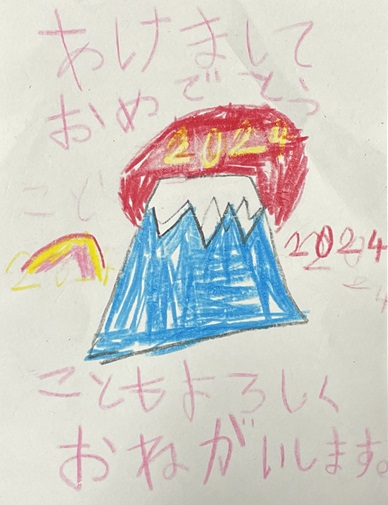 あけまして
おめでとう
2024
2024
こともよろしく
おねがいします。